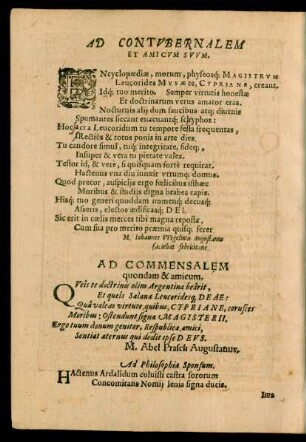 AD CONTVBERNALEM
ET AMICVM SVVM.
ENcyclopædiæ, morum, physeosq́; MAGISTRVM
Leucorides MVSÆ TE, CYPRIANE, creant,
Idq́; tuo merito. Semper virtutis honestæ
Et doctrinarum verus amator eras.
Nocturnis alij dum faucibus atq; diurnis
Spumantes siccant evacuantq́; scyphos:
Hoc sacra Leucoridum tu tempore festa frequentas,
Rectius & totos ponis in arte dies.
Tu candore simul, tuq́; integritate, fideq́;,
Insuper & vera tu pietate vales.
Testor id, & vere, si quisquam forte requirat.
Hactenus vna diu iunxit vtrumq; domus.
Quod precor, auspicijs ergo fœlicibus isthæc
Moribus & studijs digna brabea capis.
Hisq́; tuo generi quoddam nomenq́; decusq́;
Asseris, electos ædificasq́; DEI.
Sic erit in cœlis merces tibi magna reposta,
Cum sua pro merito præmia quisq; feret
M. Iohannes VVegelinus Augustanus
faciebat subscribens.
AD COMMENSALEM
quondam & amicum.
QVeis te doctrinis olim Argentina beârit,
Et queis Salanæ Leucoridesq́; DEAE:
Quâ valeas virtute, quibus, CYPRIANE, corusces
Moribus: Ostendunt signa MAGISTERII.
Ergo tuum donum genitor, Respublica, amici,
Sentiat æternus qui dedit ipse DEVS.
M. Abel Prasch Augustanus.
Ad Philosophiæ Sponsum.
HActenus Ardalidum coluisti castra sororum
Concomitans Nomij lenia signa ducis.